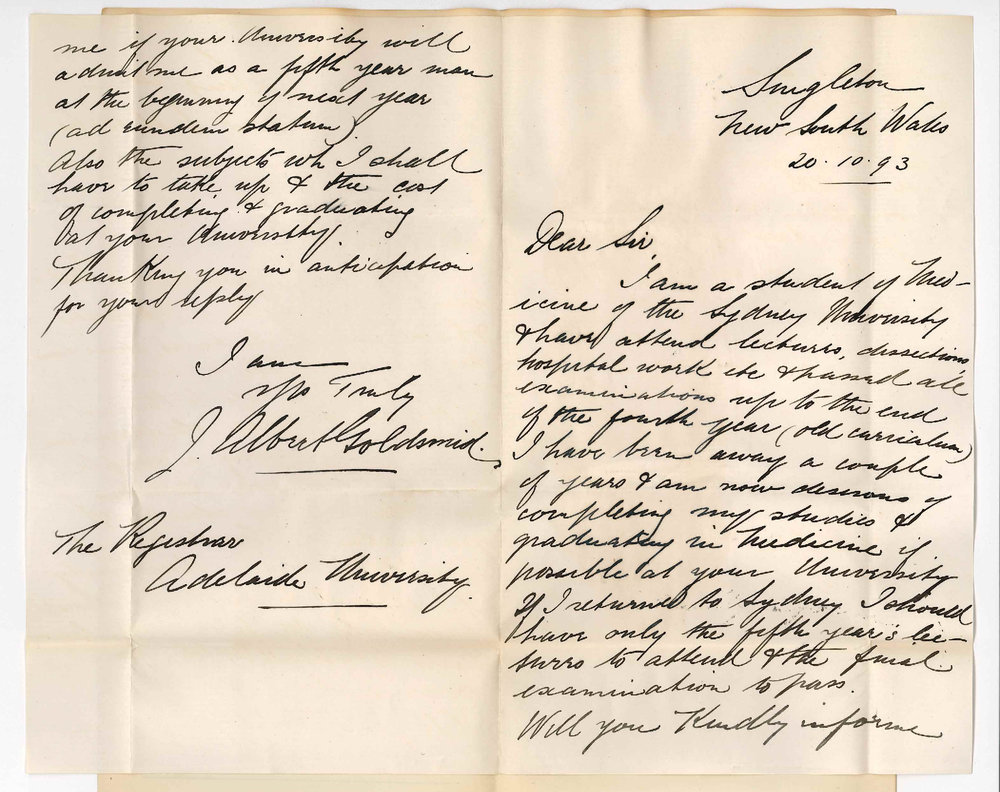 Singleton
New South Wales
20.10.93
Dear Sir,
I am a student of Med-
icine of the Sydney University
& have attend lectures, dissections,
hospital work etc & passed all
examinations up to the end
of the fourth year (old curriculum)
I have been away a couple
of years & am now desirous of
completing my studies &
graduating in Medicine if
possible at your University
If I returned to Sydney I should
have only the fifth year's lec-
tures to attend & the final
examination to pass.
Will you Kindly inform
me if your University will
admit me as a fifth year man
at the beginning of next year
(ad eundem statum).
Also the subjects wh I shall
have to take up & the cost
of completing & graduating
at your University.
Thanking you in anticipation
for your reply
I am
Yrs Truly
J. Albert Goldsmid.
The Registrar
Adelaide University.